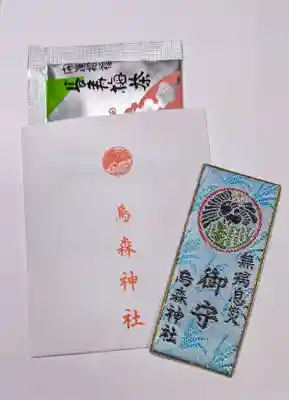 開運招福
長寿梅茶
烏森神社
無病息災
御守
烏森神社